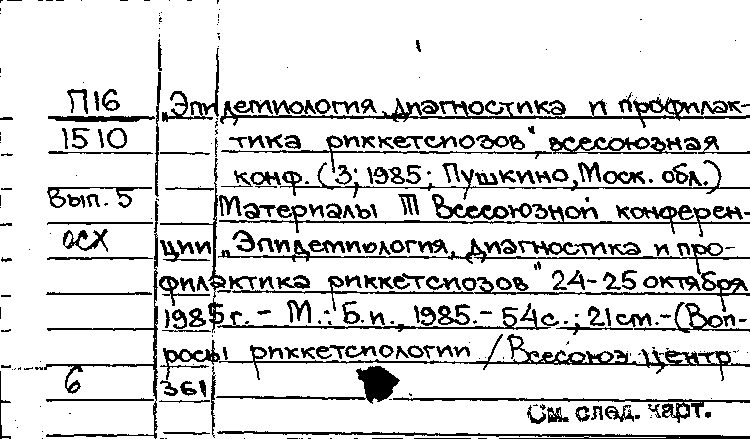 П16 „Эпидемиология, диагностика и профилак-
1510 тика риккетсиозов", всесоюзная
конф. (3; 1985; Пушкино, Моск. обл.)
Вып. 5 Материалы III Всесоюзной конферен-
ОСХ ции „Эпидемиология, диагностика и про-
филактика риккетсиозов" 24-25 октября
1985 г. - М.: Б.и., 1985. - 54 с.; 21 см. - (Воп-
росы риккетсиологии / Всесоюз. центр
6 361
См. след. карт.